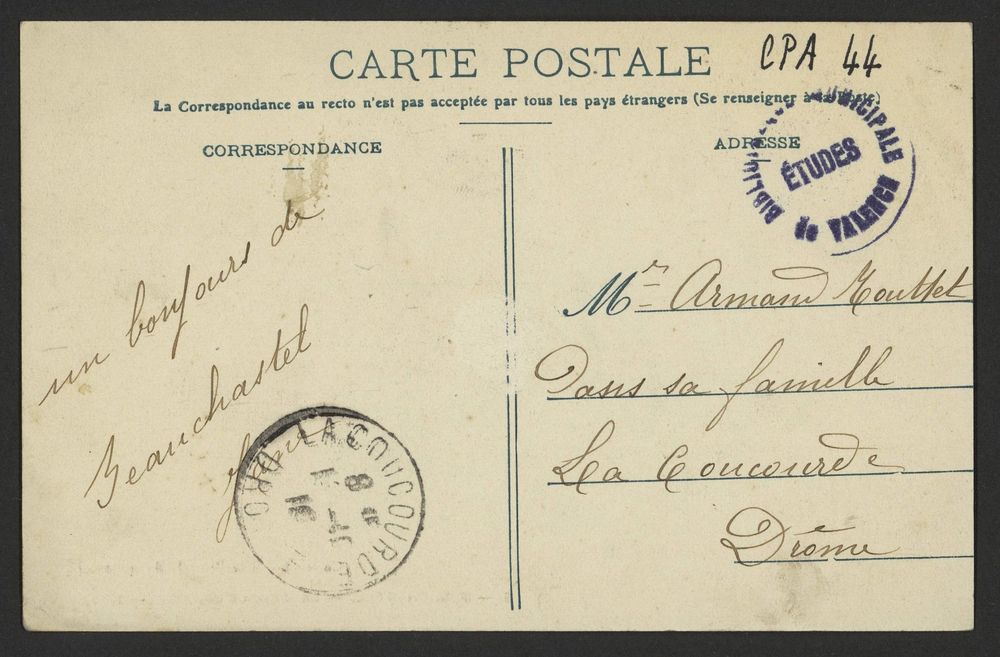 CARTE POSTALE
CPA 44
La Correspondance au recto n'est pas acceptée par tous les pays étrangers (Se renseigner à la Poste)
CORRESPONDANCE
ADRESSE
BIBLIOTHÈQUE MUNICIPALE
ÉTUDES
de VALENCE
un bonjours de
Beauchastel
Mr Armand
Dans sa famille
La Coucourde
Drôme
LA COUCOURDE
8